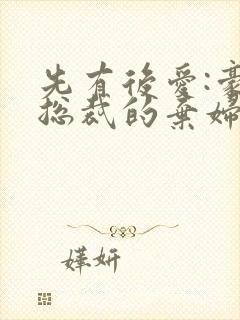 先有後愛:豪
總裁的棄婦
嬅妍